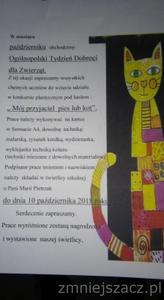 W miesiącu
października obchodzimy
Ogólnopolski Tydzień Dobroci
dla Zwierząt.
Z tej okazji zapraszamy wszystkich
chętnych uczniów do wzięcia udziału
w konkursie plastycznym pod hasłem :
„ Mój przyjaciel pies lub kot".
Prace należy wykonywać na kartce
w formacie A4, dowolną techniką:
malarską, rysunek kredką, wydzieranką,
wyklejanką techniką kolażu
(techniki mieszane z dowolnych materiałów).
Podpisane prace imieniem i nazwiskiem
należy składać w świetlicy szkolnej
u Pani Marii Pietrzak
do dnia 10 października 2018 roku.
Serdecznie zapraszamy.
Prace wyróżnione zostaną nagrodzone
i wystawione naszej świetlicy.
zmniejszacz.pl